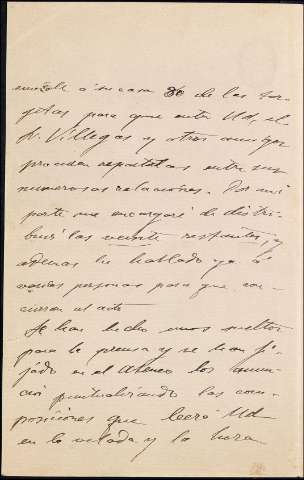 á su casa 30 de las tar-
jetas para que entre Ud, el
Sr. Villegas y otros amigos
procuren repartirlas entre sus
numerosas relaciones. Por mi
parte me encargaré de distri-
buir las veinte restantes, y
además he hablado ya á
varias personas para que con-
curran al acto
Se han hecho unos sueltos
para la prensa y se han fi-
jado en el Ateneo los anun-
cios puntualizando las com-
posiciones que leerá Ud
en la velada y la hora